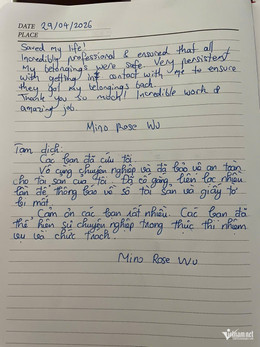 DATE 29/04/2026
PLACE
Saved my life!
Incredibly professional & ensured that all
My belongings were safe. Very persistent
with getting in contact with me to ensure
they got my belongings back.
Thank you so much! Incredible work &
amazing job.
Mino Rose Wu
Tạm dịch:
Các bạn đã cứu tôi
Vô cùng chuyên nghiệp và đã bảo vệ an toàn
cho tài sản của tôi. Đã cố gắng liên lạc nhiều
lần để thông báo về số tài sản và giấy tờ
bị mất.
Cảm ơn các bạn rất nhiều. Các bạn đã
thể hiện sự chuyên nghiệp trong thực thi nhiệm
vụ và chức trách.
Mino Rose Wu
Vietnamnet